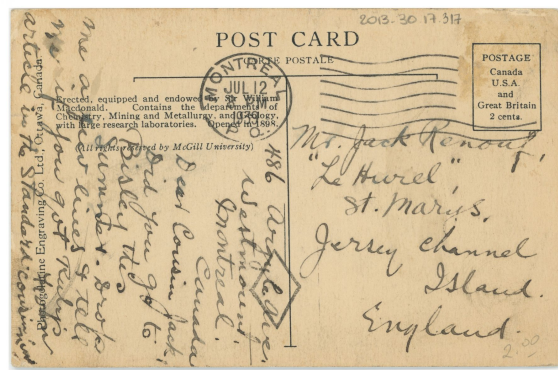 2013.30.17.317
POST CARD
CARTE POSTALE
MONTREAL
JUL 12
POSTAGE
Canada
U.S.A.
and
Great Britain
2 cents.
Erected, equipped and endowed by Sir William
Macdonald. Contains the departments of
Chemistry, Mining and Metallurgy, and Geology,
with large research laboratories. Opened in 1898.
(All rights reserved by McGill University)
Photogelatine Engraving Co. Ltd., Ottawa, Canada
Mr. Jack Renouf,
"Le Hurel",
St. Marys,
Jersey Channel
Island.
England.
2.00
486 Argyle Ave.
Westmount
Montreal.
Canada
Dear Cousin Jack,
Did you go to
Bisley this
summer. Drop
me a few lines & tell
me if you got
article in the Standard